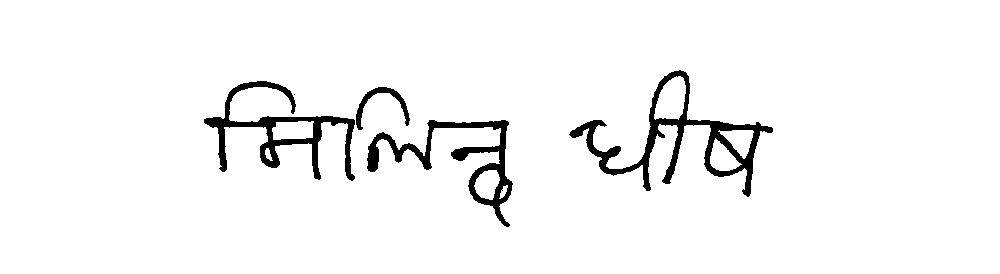 मिलिन्द घीष